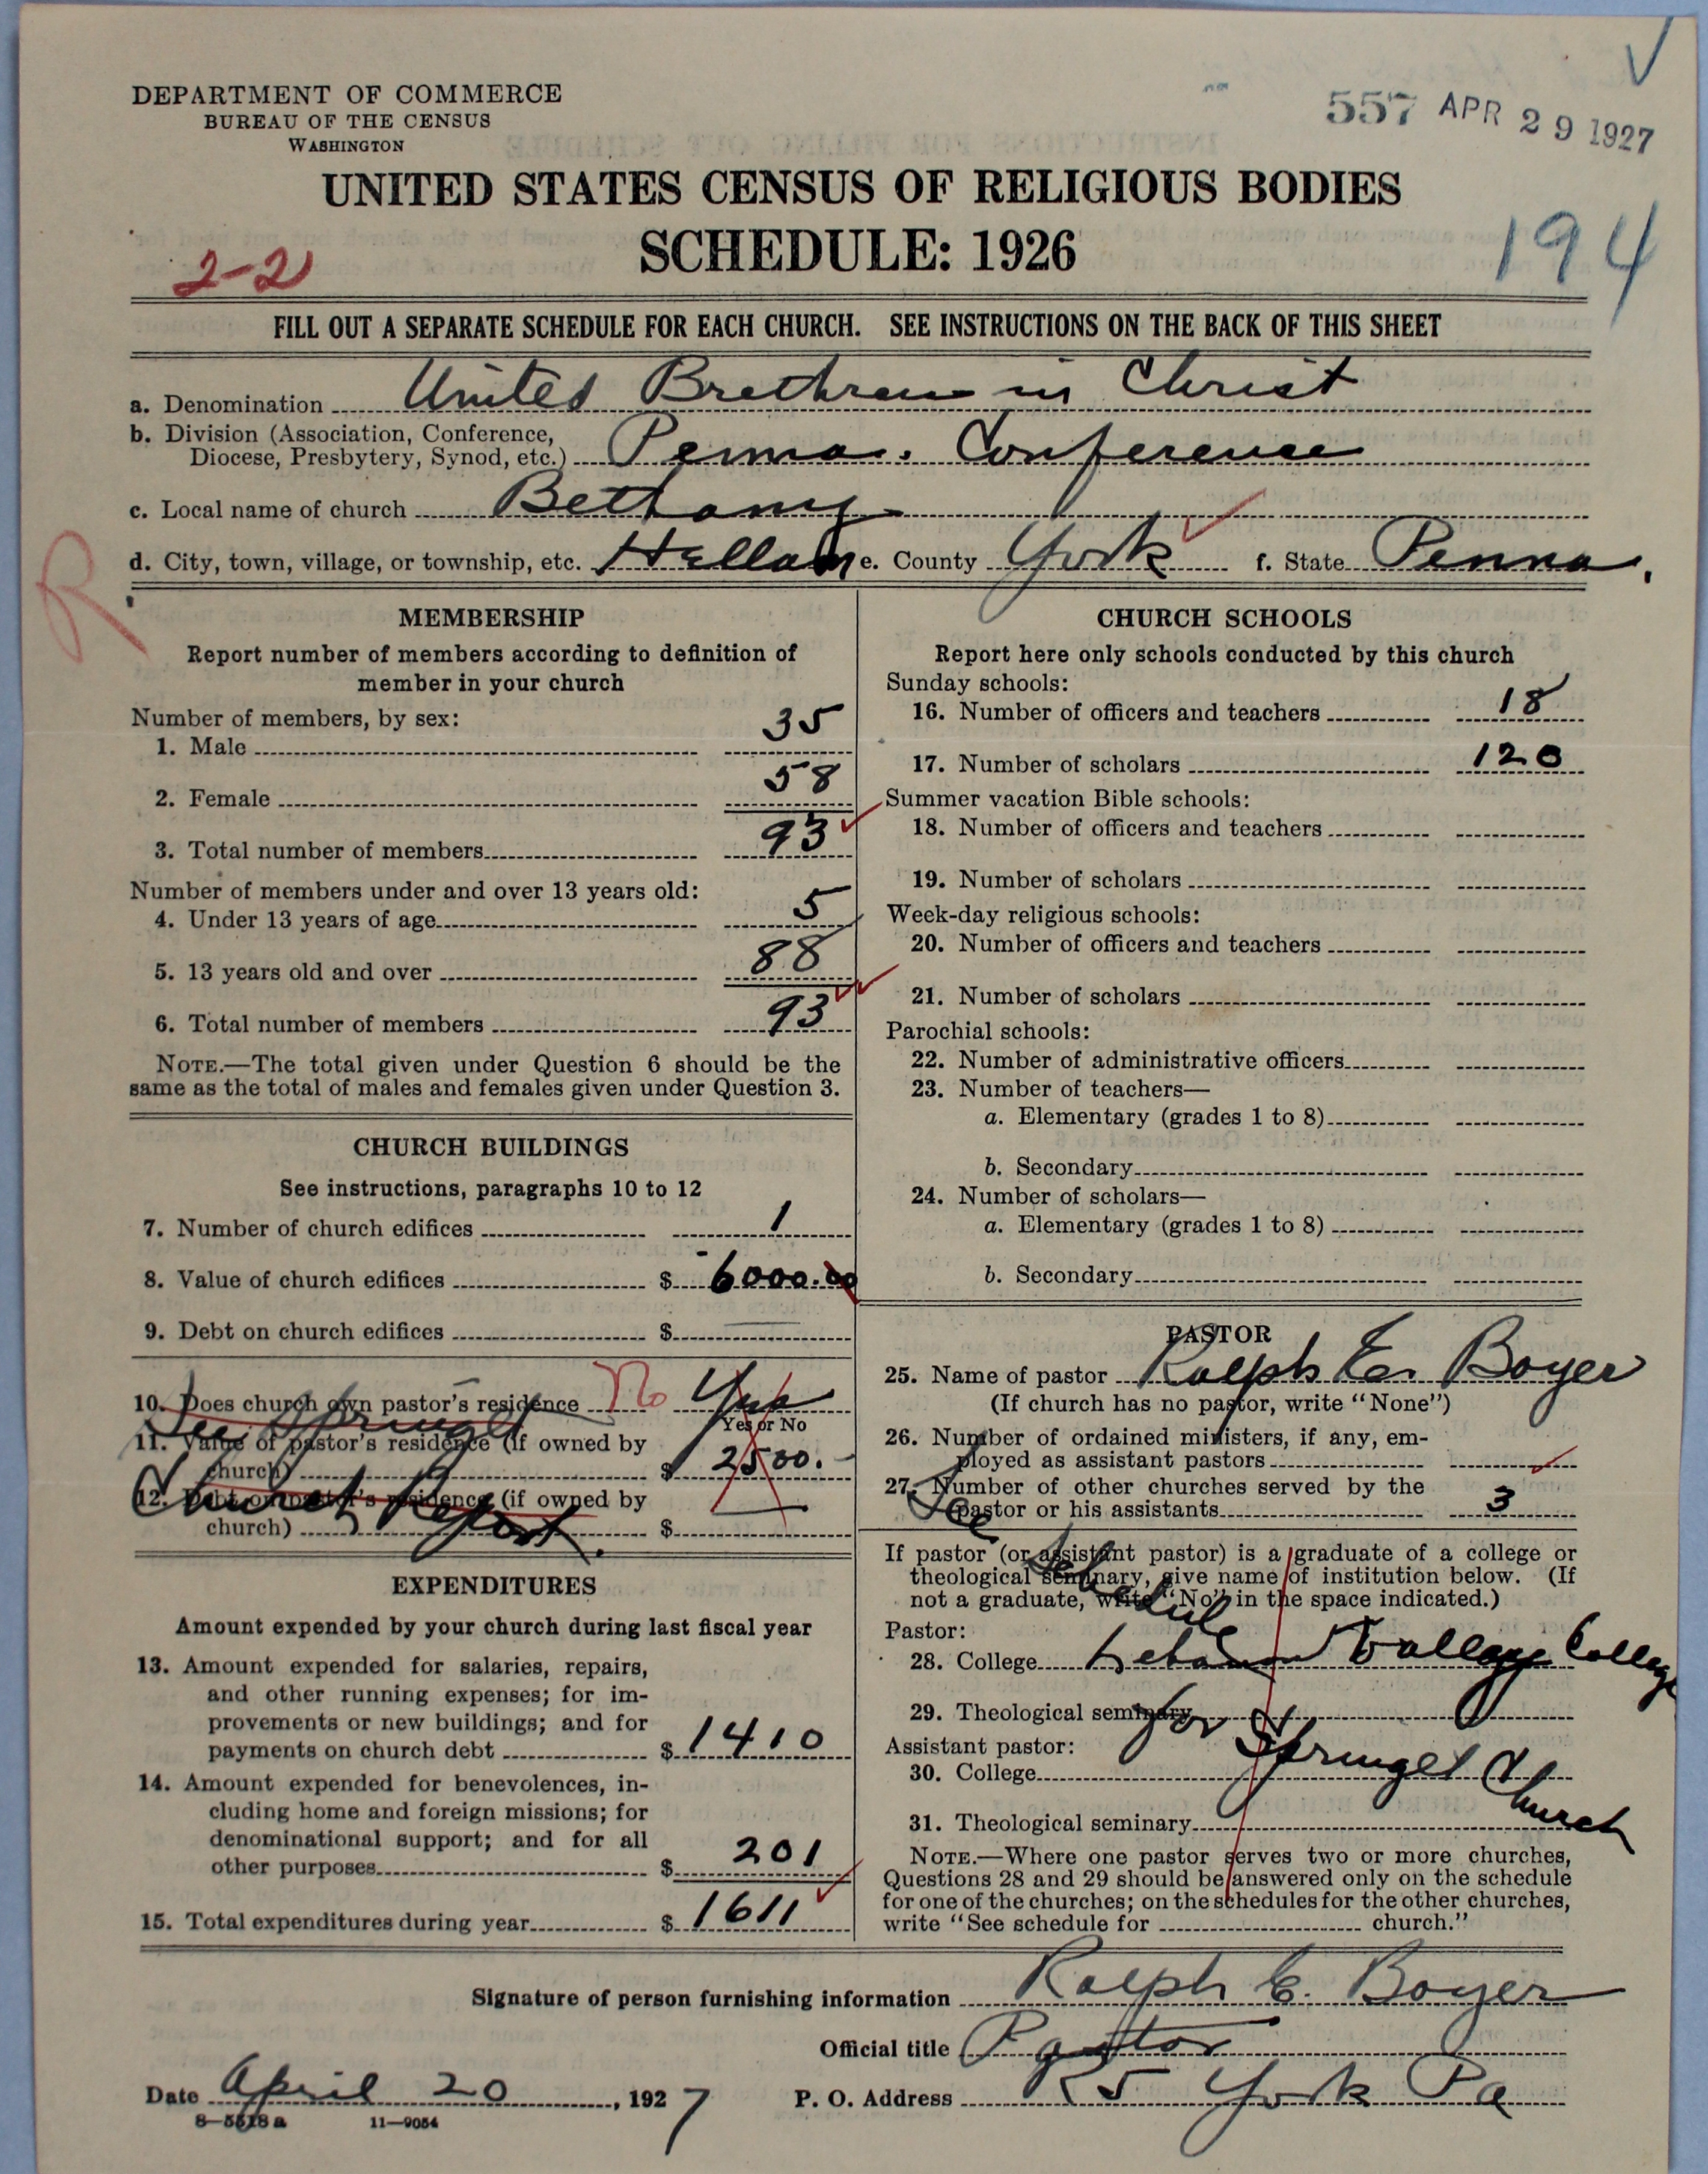 DEPARTMENT OF COMMERCE
BUREAU OF THE CENSUS
WASHINGTON
557 APR 29 1927
UNITED STATES CENSUS OF RELIGIOUS BODIES
SCHEDULE: 1926
2-2
194
FILL OUT A SEPARATE SCHEDULE FOR EACH CHURCH. SEE INSTRUCTIONS ON THE BACK OF THIS SHEET
a. Denomination United Brethren in Christ
b. Division (Association, Conference,
Diocese, Presbytery, Synod, etc.) Penna. Conference
c. Local name of church Bethany
d. City, town, village, or township, etc. Hellam e. County York f. State Penna.
R
MEMBERSHIP
Report number of members according to definition of
member in your church
Number of members, by sex:
1. Male 35
2. Female 58
3. Total number of members 93
Number of members under and over 13 years old:
4. Under 13 years of age 5
5. 13 years old and over 88
6. Total number of members 93
NOTE.—The total given under Question 6 should be the
same as the total of males and females given under Question 3.
CHURCH BUILDINGS
See instructions, paragraphs 10 to 12
7. Number of church edifices 1
8. Value of church edifices $ 6000.00
9. Debt on church edifices $
10. Does church own pastor's residence No Yes
Yes or No
See Springet
11. Value of pastor's residence (if owned by
church) $ 2500.
Church Report.
12. Debt on pastor's residence (if owned by
church) $
EXPENDITURES
Amount expended by your church during last fiscal year
13. Amount expended for salaries, repairs,
and other running expenses; for im-
provements or new buildings; and for
payments on church debt $ 1410
14. Amount expended for benevolences, in-
cluding home and foreign missions; for
denominational support; and for all
other purposes $ 201
15. Total expenditures during year $ 1611
CHURCH SCHOOLS
Report here only schools conducted by this church
Sunday schools:
16. Number of officers and teachers 18
17. Number of scholars 120
Summer vacation Bible schools:
18. Number of officers and teachers
19. Number of scholars
Week-day religious schools:
20. Number of officers and teachers
21. Number of scholars
Parochial schools:
22. Number of administrative officers
23. Number of teachers—
a. Elementary (grades 1 to 8)
b. Secondary
24. Number of scholars—
a. Elementary (grades 1 to 8)
b. Secondary
PASTOR
25. Name of pastor Ralph E. Boyer
(If church has no pastor, write "None")
26. Number of ordained ministers, if any, em-
ployed as assistant pastors
27. Number of other churches served by the
pastor or his assistants 3
See Schedule
If pastor (or assistant pastor) is a graduate of a college or
theological seminary, give name of institution below. (If
not a graduate, write "No" in the space indicated.)
Pastor:
28. College Lebanon Valley College
29. Theological seminary
for Springet Church
Assistant pastor:
30. College
31. Theological seminary
NOTE.—Where one pastor serves two or more churches,
Questions 28 and 29 should be answered only on the schedule
for one of the churches; on the schedules for the other churches,
write "See schedule for church."
Signature of person furnishing information Ralph E. Boyer
Official title Pastor
Date April 20, 1927 P. O. Address R5 York Pa
8—5518a 11—9054